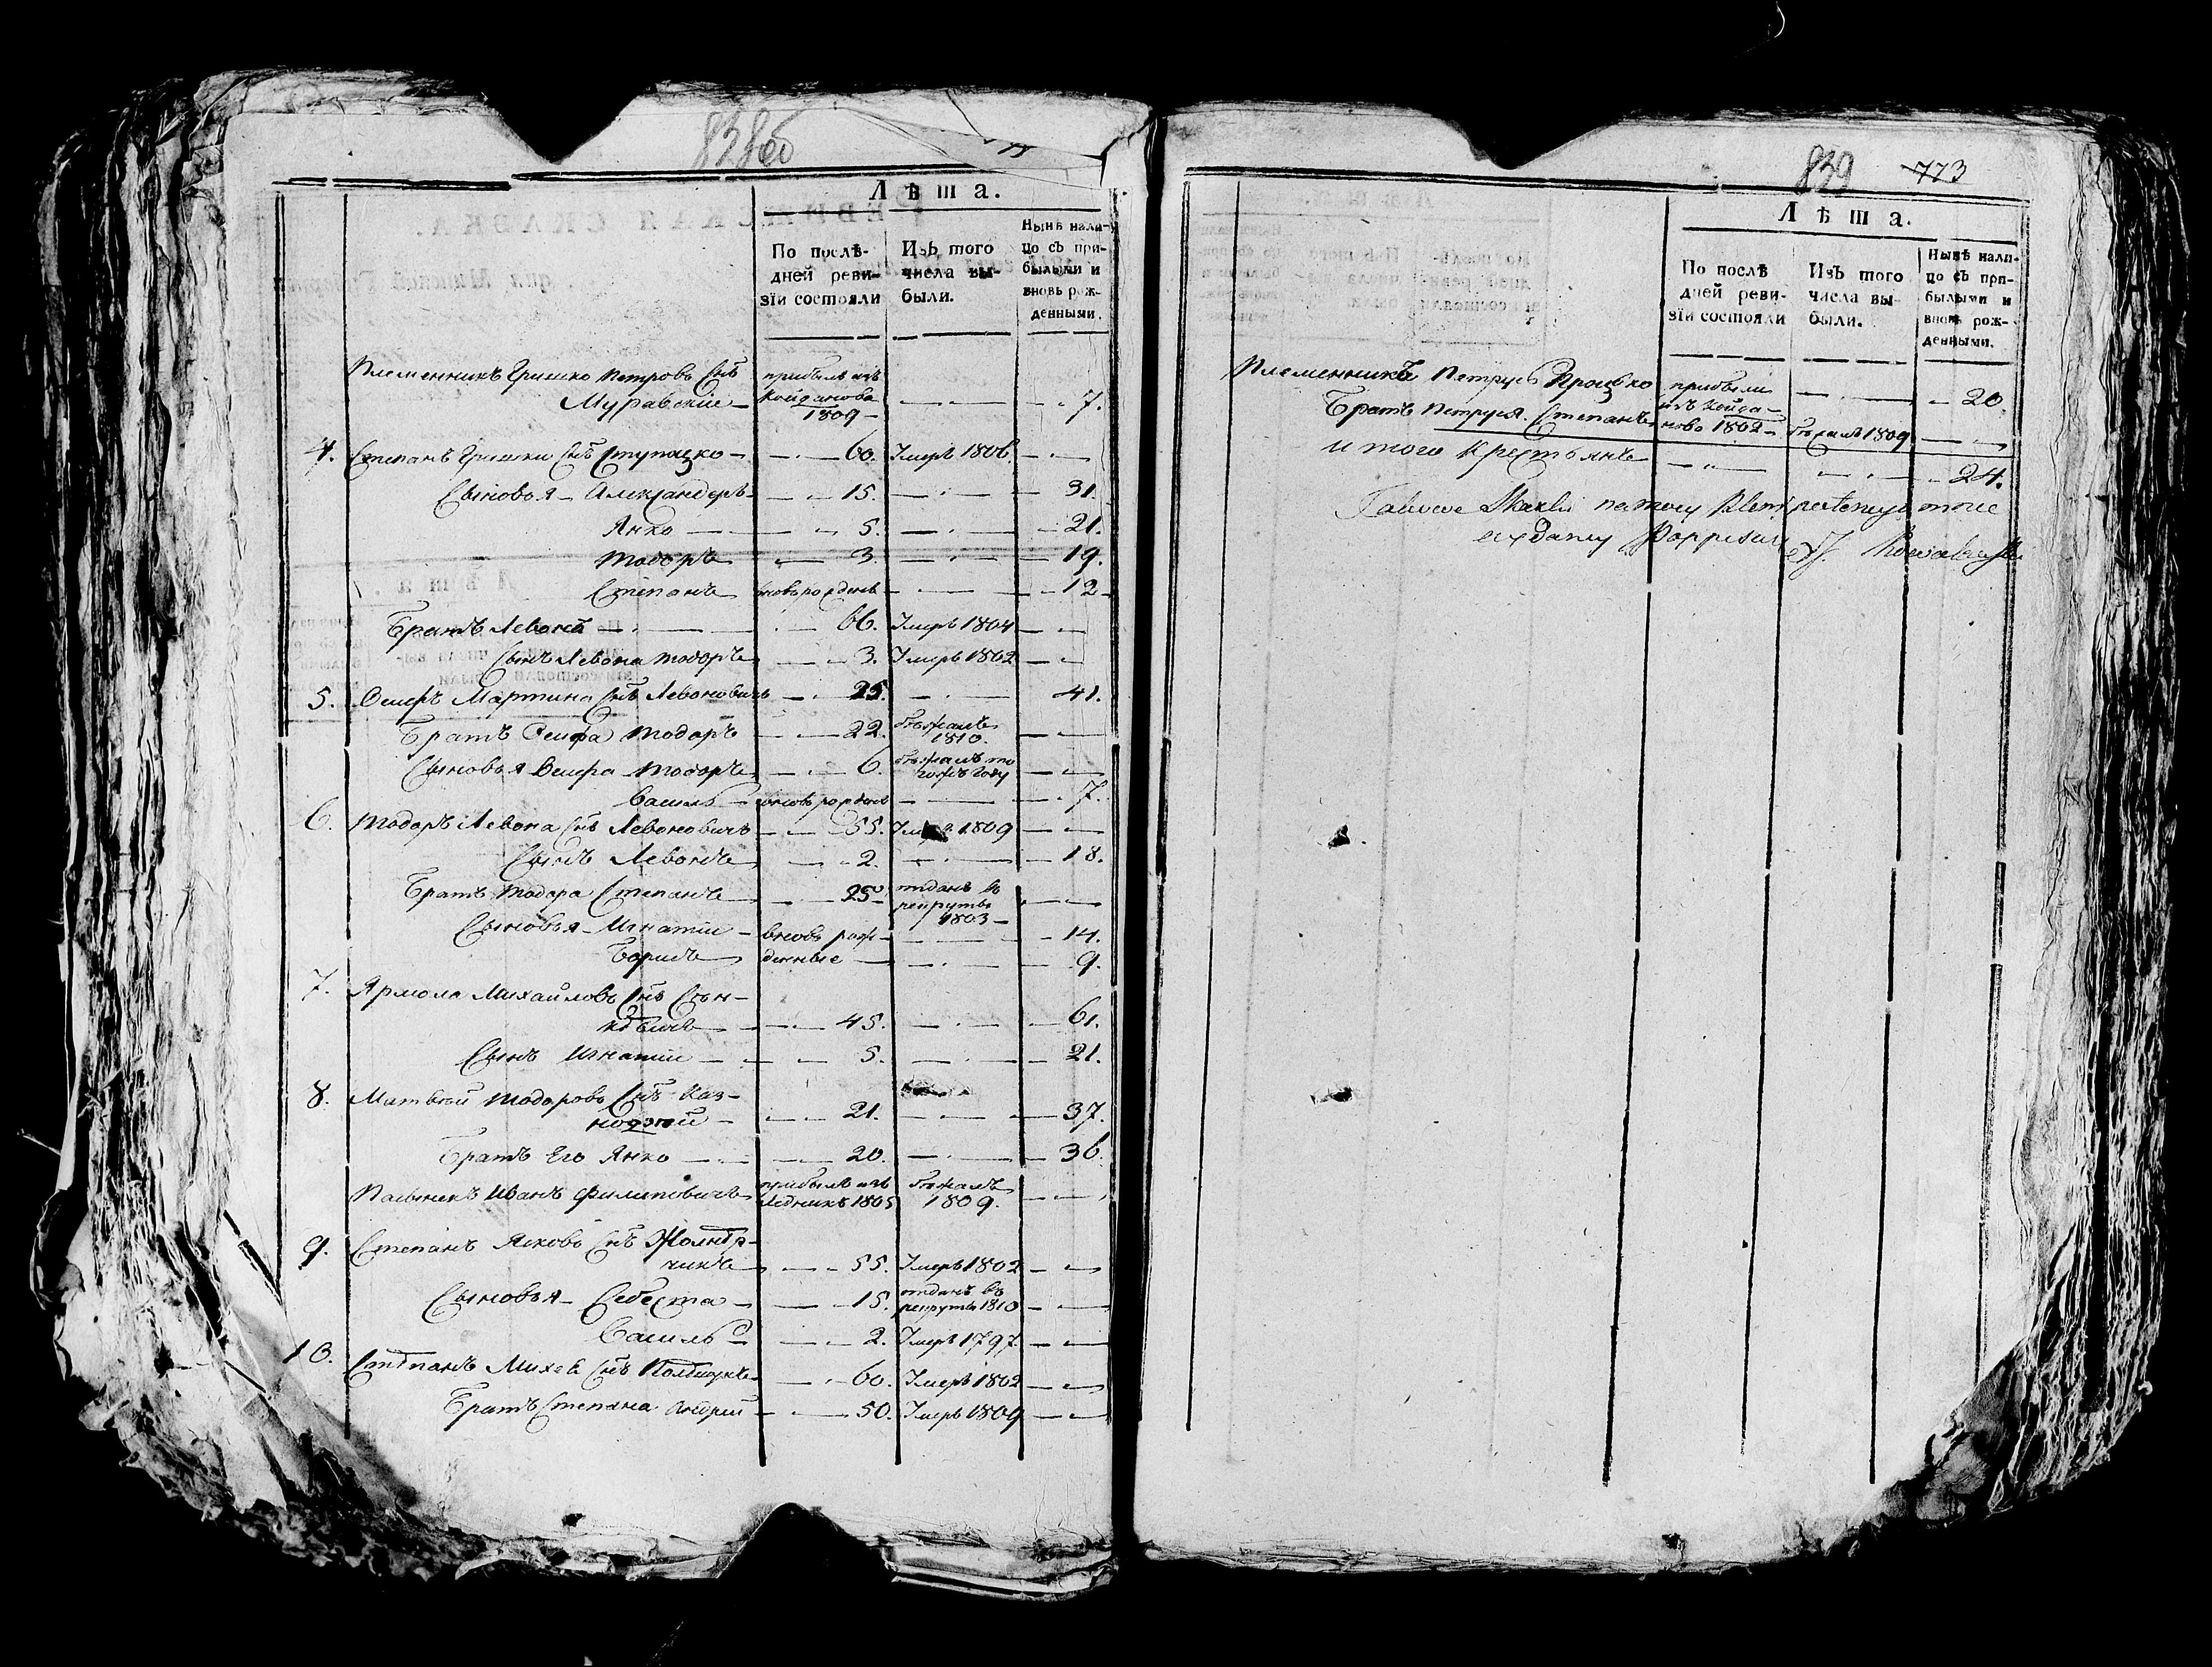 838об
Лѣта.
По послѣ-
дней реви-
зіи состояли
Изъ того
числа вы-
были.
Нынѣ нали-
цо съ при-
былыми и
вновь рож-
денными.
Племенникъ Гришко Петровъ Снъ прибылъ изъ
Муравскіи Койданова 1809 7.
4. Степанъ Гришки Снъ Ступацко 60. Умеръ 1806.
Сыновья Александеръ 15. 31.
Янко 5. 21.
Тодоръ 3. 19.
Степанъ вновь рожденъ 12
Братъ Левонъ 66. Умеръ 1804
Сынъ Левона Тодоръ 3. Умеръ 1802
5. Осипъ Мартина Снъ Левоновичъ 25. 41.
Братъ Осипа Тодоръ 22. бѣжалъ 1810.
Сыновья Осипа Тодоръ 6. бѣжалъ то
гожъ году
Василь вновь рожденъ 7.
6. Тодоръ Левона Снъ Левоновичъ 55. Умеръ 1809
Сынъ Левонъ 2. 18.
Братъ Тодора Степанъ 25 отданъ въ
рекруты
1803
Сыновья Игнатіи вновь рож- 14.
Борисъ денные 9.
7. Ярмола Михайловъ Снъ Сен-
кѣвичъ 45. 61.
Сынъ Игнатіи 5. 21.
8. Матвѣй Тодоровъ Снъ Каз-
нодѣй 21. 37.
Братъ Его Янко 20. 36.
Иванъ Филиповичъ прибылъ изъ бѣжалъ
1805 1809.
9. Степанъ Ясковъ Снъ Жолнер-
чикъ 55. Умеръ 1802
Сыновья Себеста 15. отданъ въ
рекруты 1810
Василь 2. Умеръ 1797
10. Степанъ Михея Снъ 60. Умеръ 1802
Братъ Степана Андрей 50. Умеръ 1809
839 773
Лѣта.
По послѣ
дней реви-
зіи состояли
Изъ того
числа вы-
были.
Нынѣ нали-
цо съ при-
былыми и
вновь рож-
денными.
Племенникъ Петрусь Процко прибыли 20
Братъ Петруся Степанъ изъ Койда-
ново 1802 бѣжалъ 1809
итого крестьянъ 24.
Takowe Skazki na mocy Plenipotencyi mnie
wydaney Podpisuię J. Kowalewski